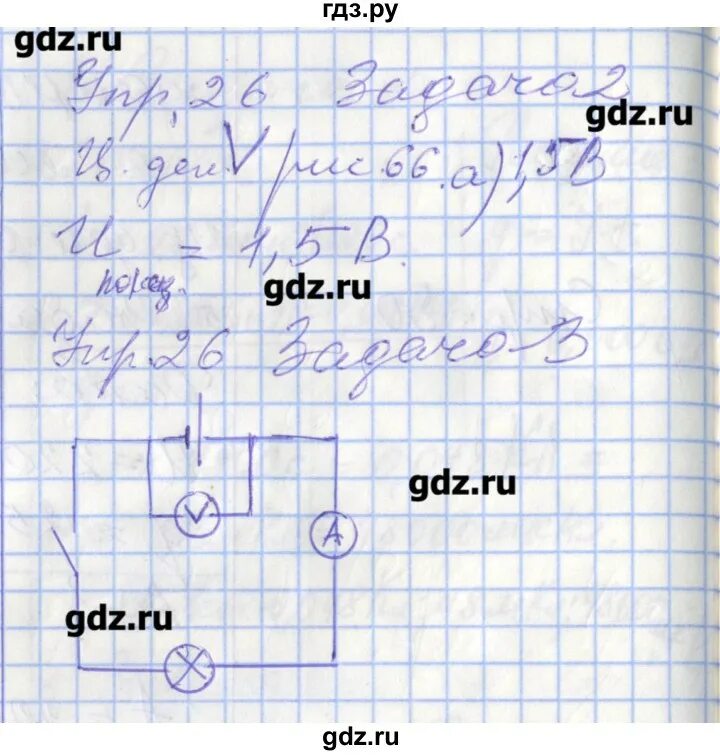 гдз.ру
gdz.ru
Упр. 26 Задача 2
gdz.ru
Ц. дел. V (рис. 66. а) 1,5 В
U = 1,5 В.
gdz.ru
Упр. 26 Задача 3
gdz.ru
V
A
gdz.ru
gdz.ru